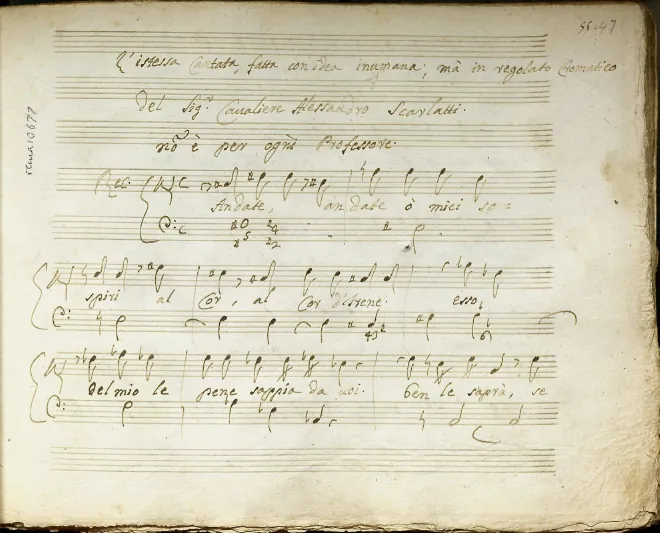 55. 47
L'istessa Cantata, fatta con idea inumana; mà in regolato Cromatico
Del Sig.r Cavaliere Alessandro Scarlatti.
nõ è per ogni Professore.
Rec:
Andate, andate ò miei so=
spiri al Cor, al Cor d'Irene. esso,
Del mio le pene sappia da voi. ben le saprà, se